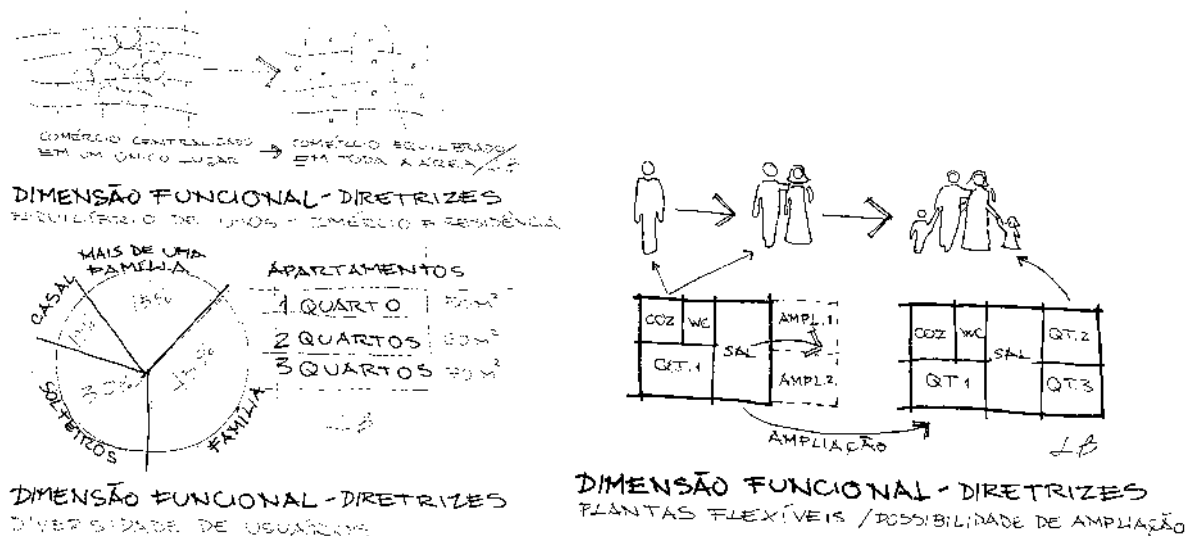 COMÉRCIO CENTRALIZADO
EM UM ÚNICO LUGAR
COMÉRCIO EQUILIBRADO
EM TODA A ÁREA
DIMENSÃO FUNCIONAL - DIRETRIZES
EQUILÍBRIO DE USOS - COMÉRCIO E RESIDÊNCIA
MAIS DE UMA
FAMÍLIA
CASAL
SOLTEIROS
FAMÍLIA
15%
APARTAMENTOS
1 QUARTO
2 QUARTOS
3 QUARTOS
DIMENSÃO FUNCIONAL - DIRETRIZES
DIVERSIDADE DE USUÁRIOS
COZ
WC
SAL
QT.1
AMPL.1
AMPL.2
AMPLIAÇÃO
COZ
WC
SAL
QT.2
QT1
QT.3
LB
DIMENSÃO FUNCIONAL - DIRETRIZES
PLANTAS FLEXÍVEIS / POSSIBILIDADE DE AMPLIAÇÃO